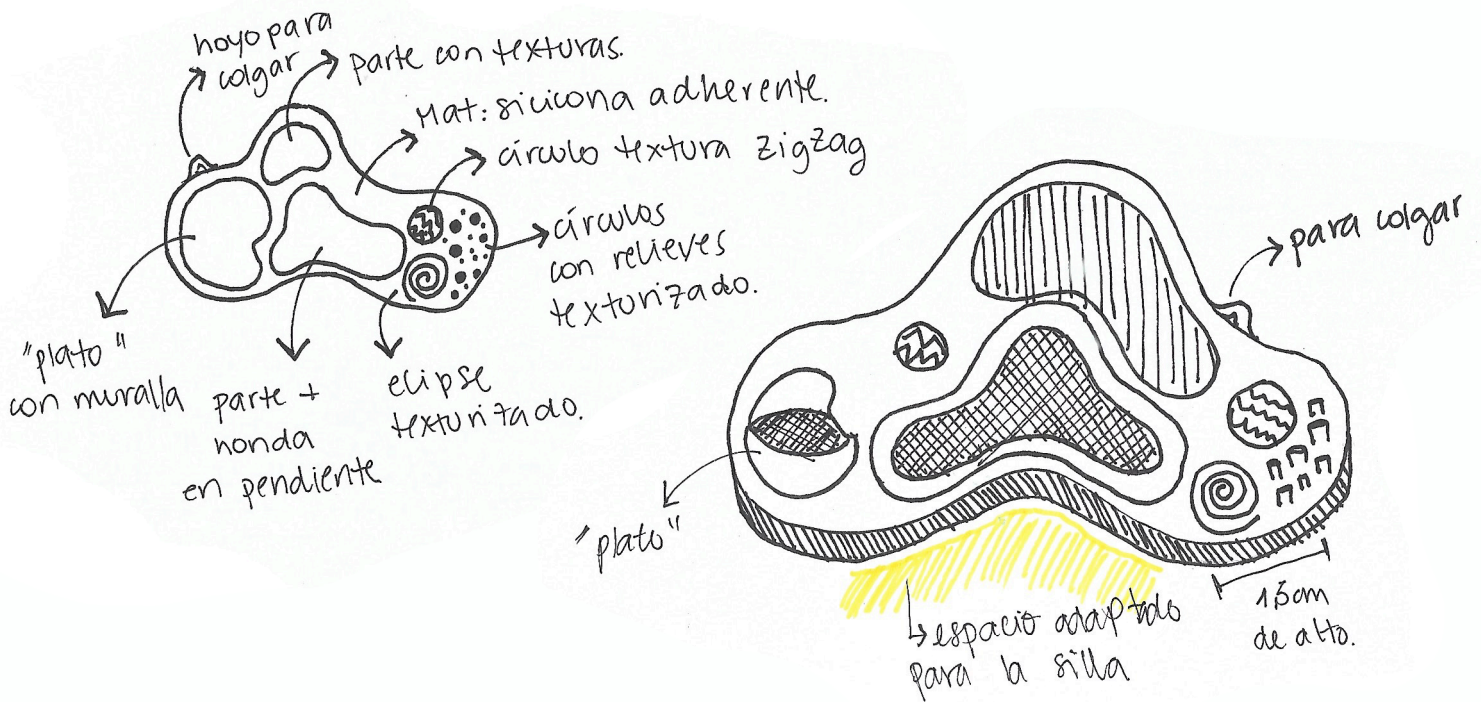 hoyo para
colgar
parte con texturas.
Mat: sicicona adherente.
círculo textura zigzag
círculos
con relieves
texturizado.
"plato"
con muralla
parte +
honda
en pendiente
elipse
texturizado.
para colgar
"plato"
espacio adaptado
para la silla
1,5cm
de alto.